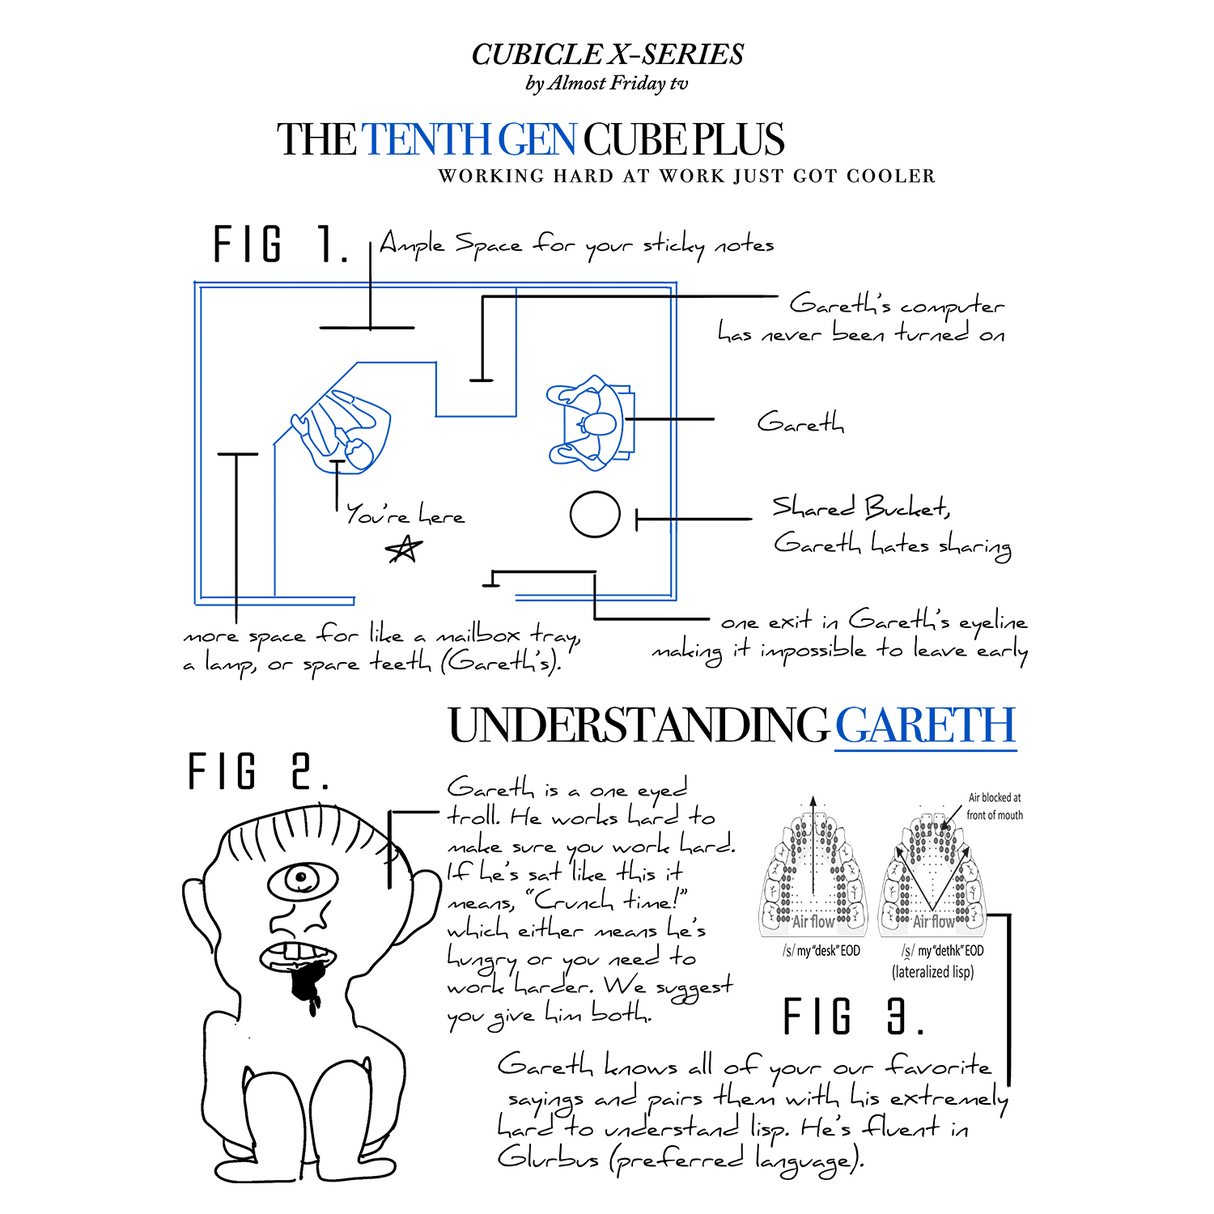 CUBICLE X-SERIES
by Almost Friday tv
THE TENTH GEN CUBE PLUS
WORKING HARD AT WORK JUST GOT COOLER
FIG 1.
Ample Space for your sticky notes
Gareth's computer
has never been turned on
Gareth
You're here
Shared Bucket,
Gareth hates sharing
one exit in Gareth's eyeline
making it impossible to leave early
more space for like a mailbox tray,
a lamp, or spare teeth (Gareth's).
UNDERSTANDING GARETH
FIG 2.
Gareth is a one eyed
troll. He works hard to
make sure you work hard.
If he's sat like this it
means, "Crunch time!"
which either means he's
hungry or you need to
work harder. We suggest
you give him both.
Air blocked at
front of mouth
Air flow
Air flow
/s/ my "desk" EOD
/s̪/ my "dethk" EOD
(lateralized lisp)
FIG 3.
Gareth knows all of your our favorite
sayings and pairs them with his extremely
hard to understand lisp. He's fluent in
Glurbus (preferred language).